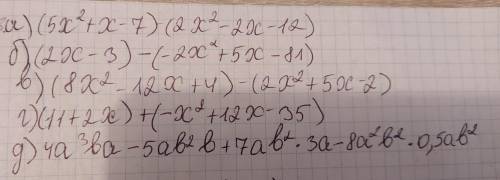 а) (5x²+x-7)(2x²-2x-12)
б) (2x-3)-(-2x²+5x-81)
в) (8x²-12x+4)-(2x²+5x-2)
г) (11+2x)+(-x²+12x-35)
д) 4a³ba-5ab²b+7ab²·3a-8a²b²·0,5ab²